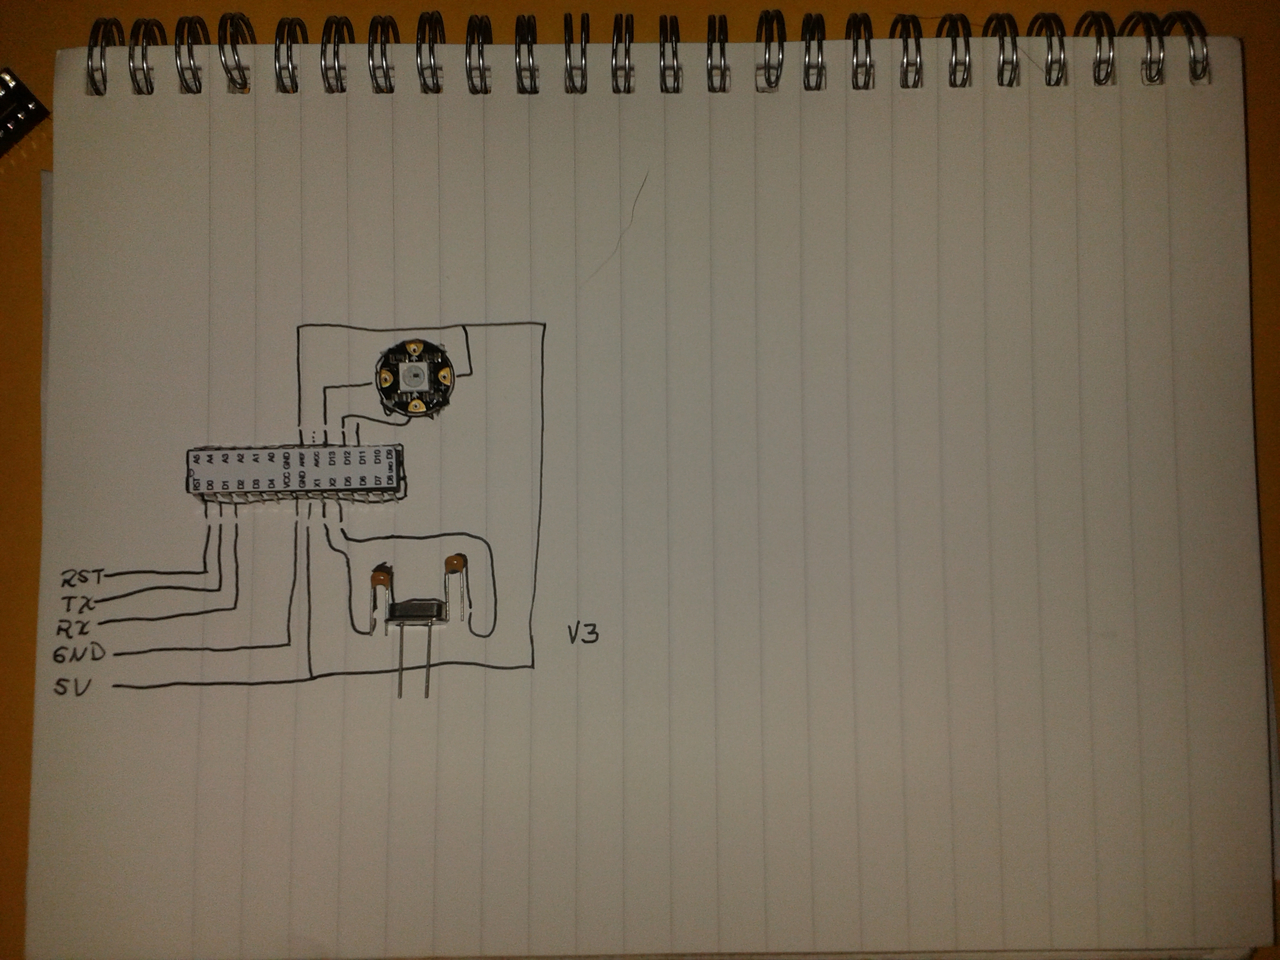 A5 A4 A3 A2 A1 A0 GND AREF AVCC D13 D12 D11 D10 D9
RST D0 D1 D2 D3 D4 VCC GND X1 X2 D5 D6 D7 D8
RST
TX
RX
GND
5V
V3